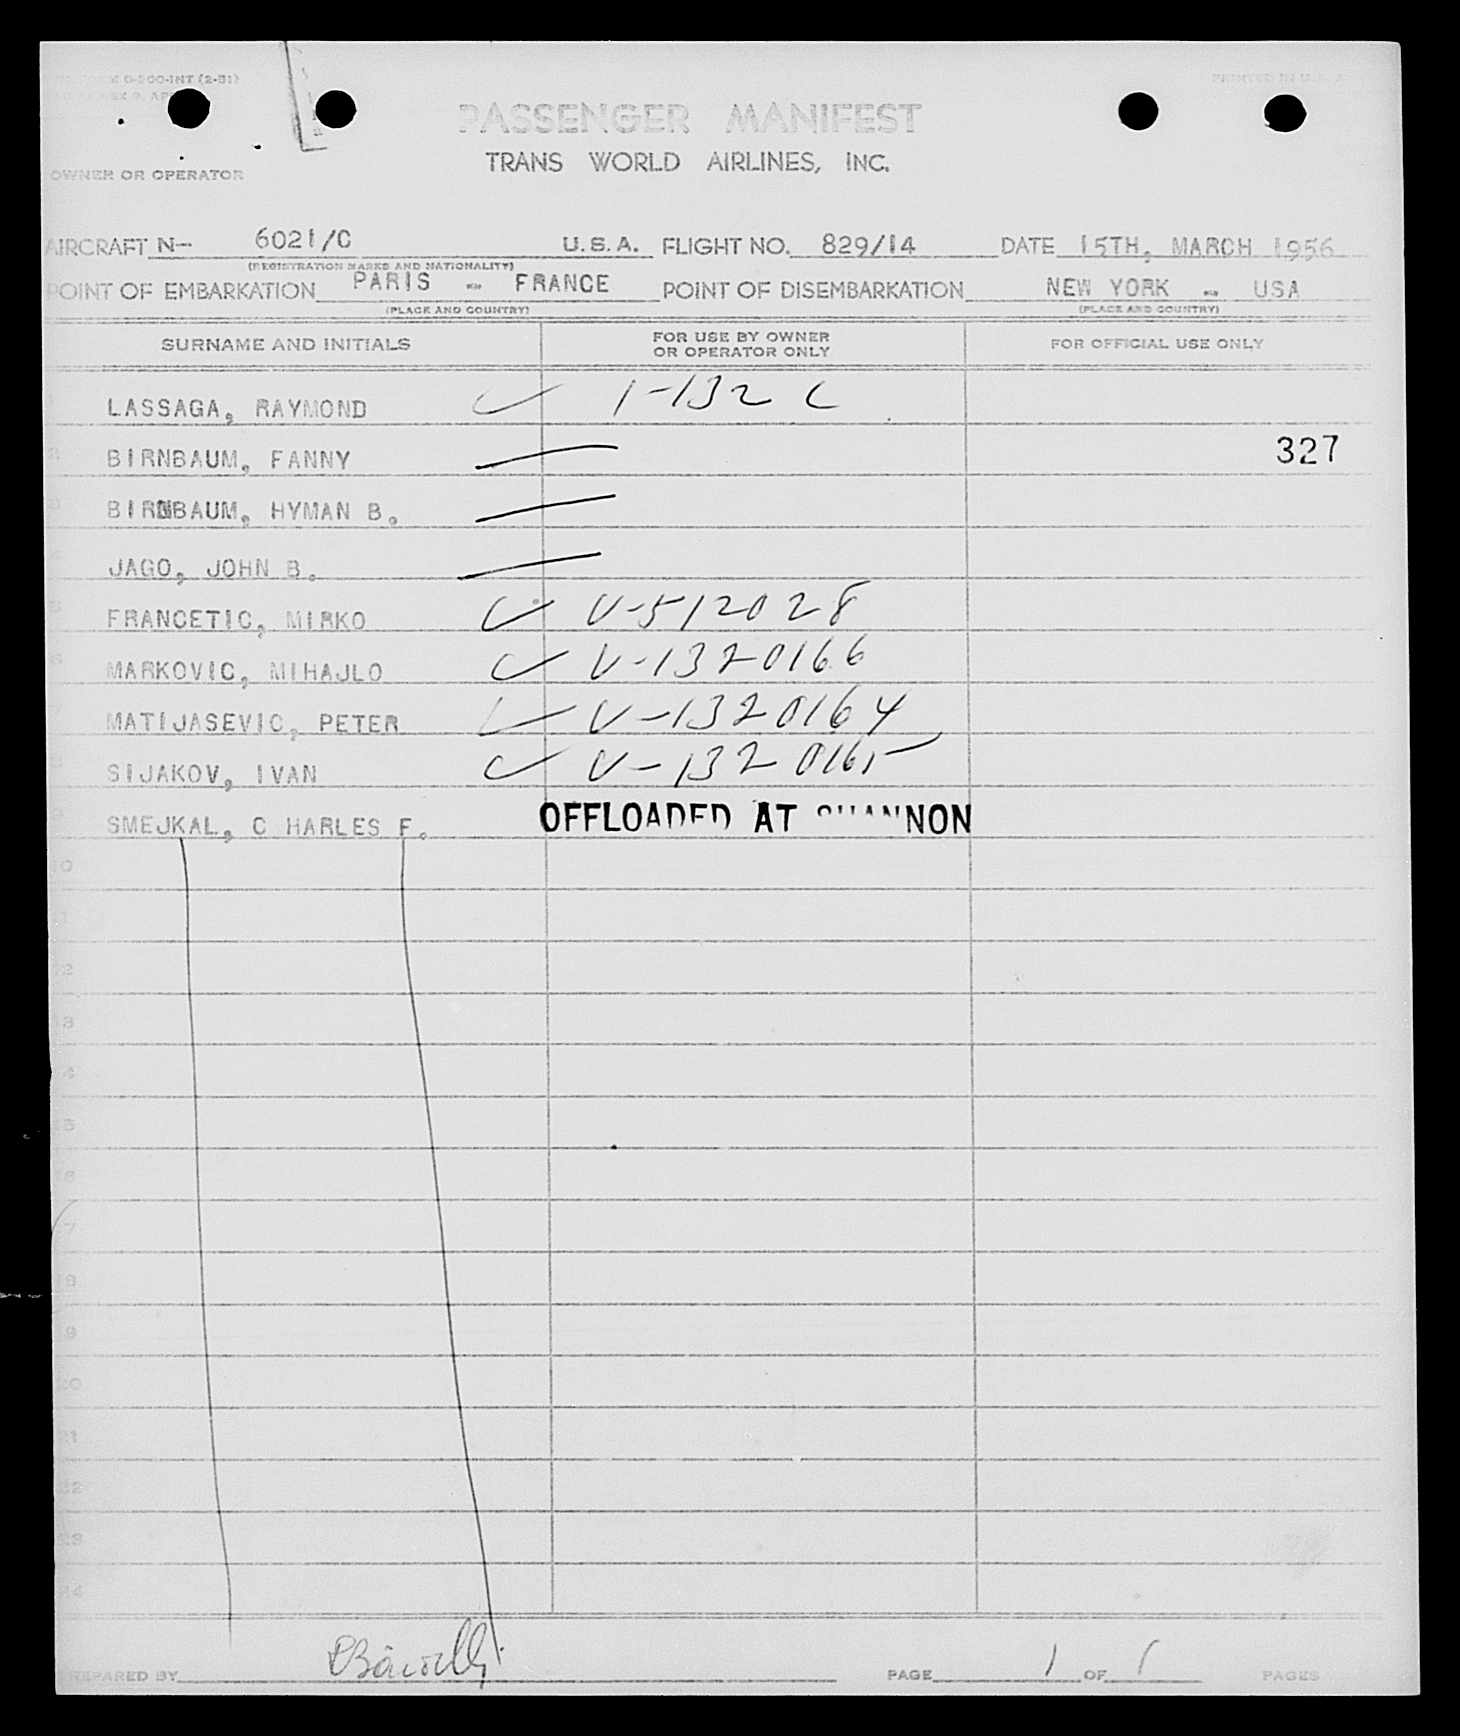 FORM 0-200-INT (2-51)
PRINTED IN U.S.A.
PASSENGER MANIFEST
TRANS WORLD AIRLINES, INC.
OWNER OR OPERATOR
AIRCRAFT N- 6021/C U.S.A. FLIGHT NO. 829/14 DATE 15TH, MARCH 1956
(REGISTRATION MARKS AND NATIONALITY)
POINT OF EMBARKATION PARIS - FRANCE POINT OF DISEMBARKATION NEW YORK - USA
(PLACE AND COUNTRY) (PLACE AND COUNTRY)
SURNAME AND INITIALS FOR USE BY OWNER OR OPERATOR ONLY FOR OFFICIAL USE ONLY
LASSAGA, RAYMOND 1-132 C
BIRNBAUM, FANNY 327
BIRNBAUM, HYMAN B.
JAGO, JOHN B.
5 FRANCETIC, MIRKO V-512028
6 MARKOVIC, MIHAJLO V-1320166
7 MATIJASEVIC, PETER V-1320164
8 SIJAKOV, IVAN V-1320165
9 SMEJKAL, C HARLES F. OFFLOADED AT SHANNON
10
11
12
13
14
15
16
17
18
19
20
21
22
23
24
PREPARED BY PAGE 1 OF 1 PAGES